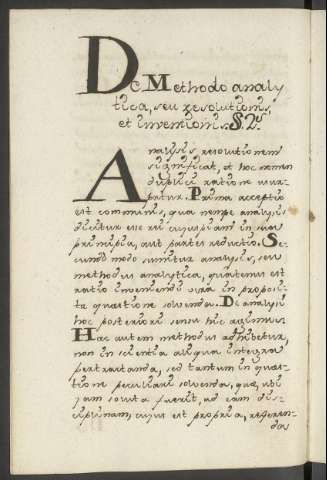 De Methodo analy
tica, seu resolutionis,
et inventionis. §. 2us
Analysis resolutionem
significat, et hoc nomen
duplici ratione usur-
patur. Prima acceptio
est communis, qua nempe analysis
dicitur esse rei cujuspiam in sua
principia, aut partes reductio. Se-
cundo modo sumitur analysis, seu
methodus analytica, quatenus est
ratio inveniendi viam in proposi-
ta quaestione solvenda. De analysi
hoc posteriori sensu hic agimus.
Haec autem methodus adhibetur,
non in scientia aliqua integra
pertractanda, sed tantum in quaes-
tione peculiari solvenda, quae, ubi
jam soluta fuerit, ad eam dis-
ciplinam, cujus est propria, referen-
da